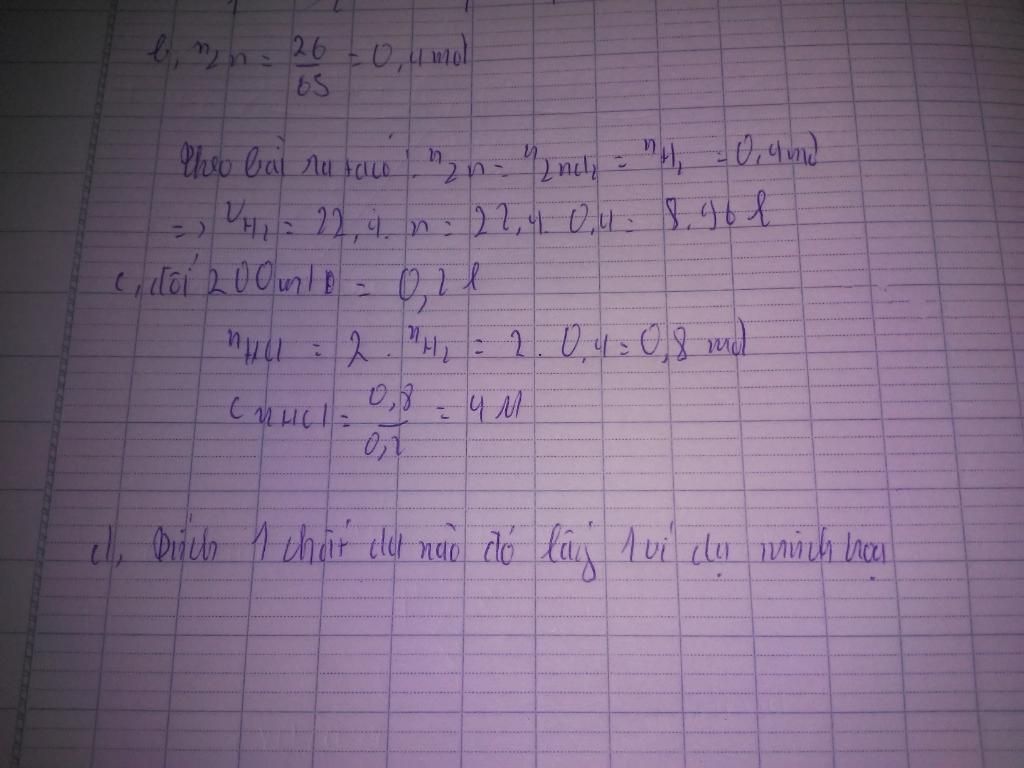 b, nZn = 26/65 = 0,4 mol
theo bài ra ta có: nZn = nZnCl2 = nH2 = 0,4 mol
=> VH2 = 22,4. n = 22,4. 0,4 = 8.96 l
c, đổi 200 ml = 0,2 l
nHCl = 2. nH2 = 2. 0,4 = 0,8 mol
CMHCl = 0,8/0,2 = 4 M
d, 1 chất nào đó lấy 1 ví dụ minh hoạ